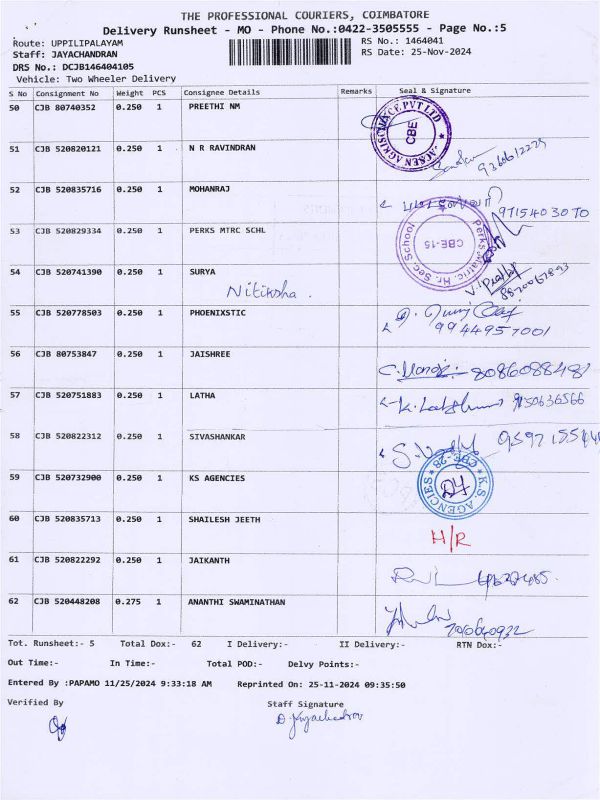 THE PROFESSIONAL COURIERS, COIMBATORE
Delivery Runsheet - MO - Phone No.:0422-3505555 - Page No.:5
Route: UPPILIPALAYAM RS No.: 1464041
Staff: JAYACHANDRAN RS Date: 25-Nov-2024
DRS No.: DCJB146404105
Vehicle: Two Wheeler Delivery
S No Consignment No Weight PCS Consignee Details Remarks Seal & Signature
50 CJB 80740352 0.250 1 PREETHI NM
CBE
51 CJB 520820121 0.250 1 N R RAVINDRAN
52 CJB 520835716 0.250 1 MOHANRAJ
9715403070
53 CJB 520829334 0.250 1 PERKS MTRC SCHL
Perks Matric. Hr. Sec. School
CBE-15
54 CJB 520741390 0.250 1 SURYA
Nitiksha.
55 CJB 520778503 0.250 1 PHOENIXSTIC
9944957001
56 CJB 80753847 0.250 1 JAISHREE
8086088481
57 CJB 520751883 0.250 1 LATHA
9150636566
58 CJB 520822312 0.250 1 SIVASHANKAR
59 CJB 520732900 0.250 1 KS AGENCIES
K.S. AGENCIES CBE-28
60 CJB 520835713 0.250 1 SHAILESH JEETH
H/R
61 CJB 520822292 0.250 1 JAIKANTH
62 CJB 520448208 0.275 1 ANANTHI SWAMINATHAN
Tot. Runsheet:- 5 Total Dox:- 62 I Delivery:- II Delivery:- RTN Dox:-
Out Time:- In Time:- Total POD:- Delvy Points:-
Entered By :PAPAMO 11/25/2024 9:33:18 AM Reprinted On: 25-11-2024 09:35:50
Verified By Staff Signature
D. Jayachandran